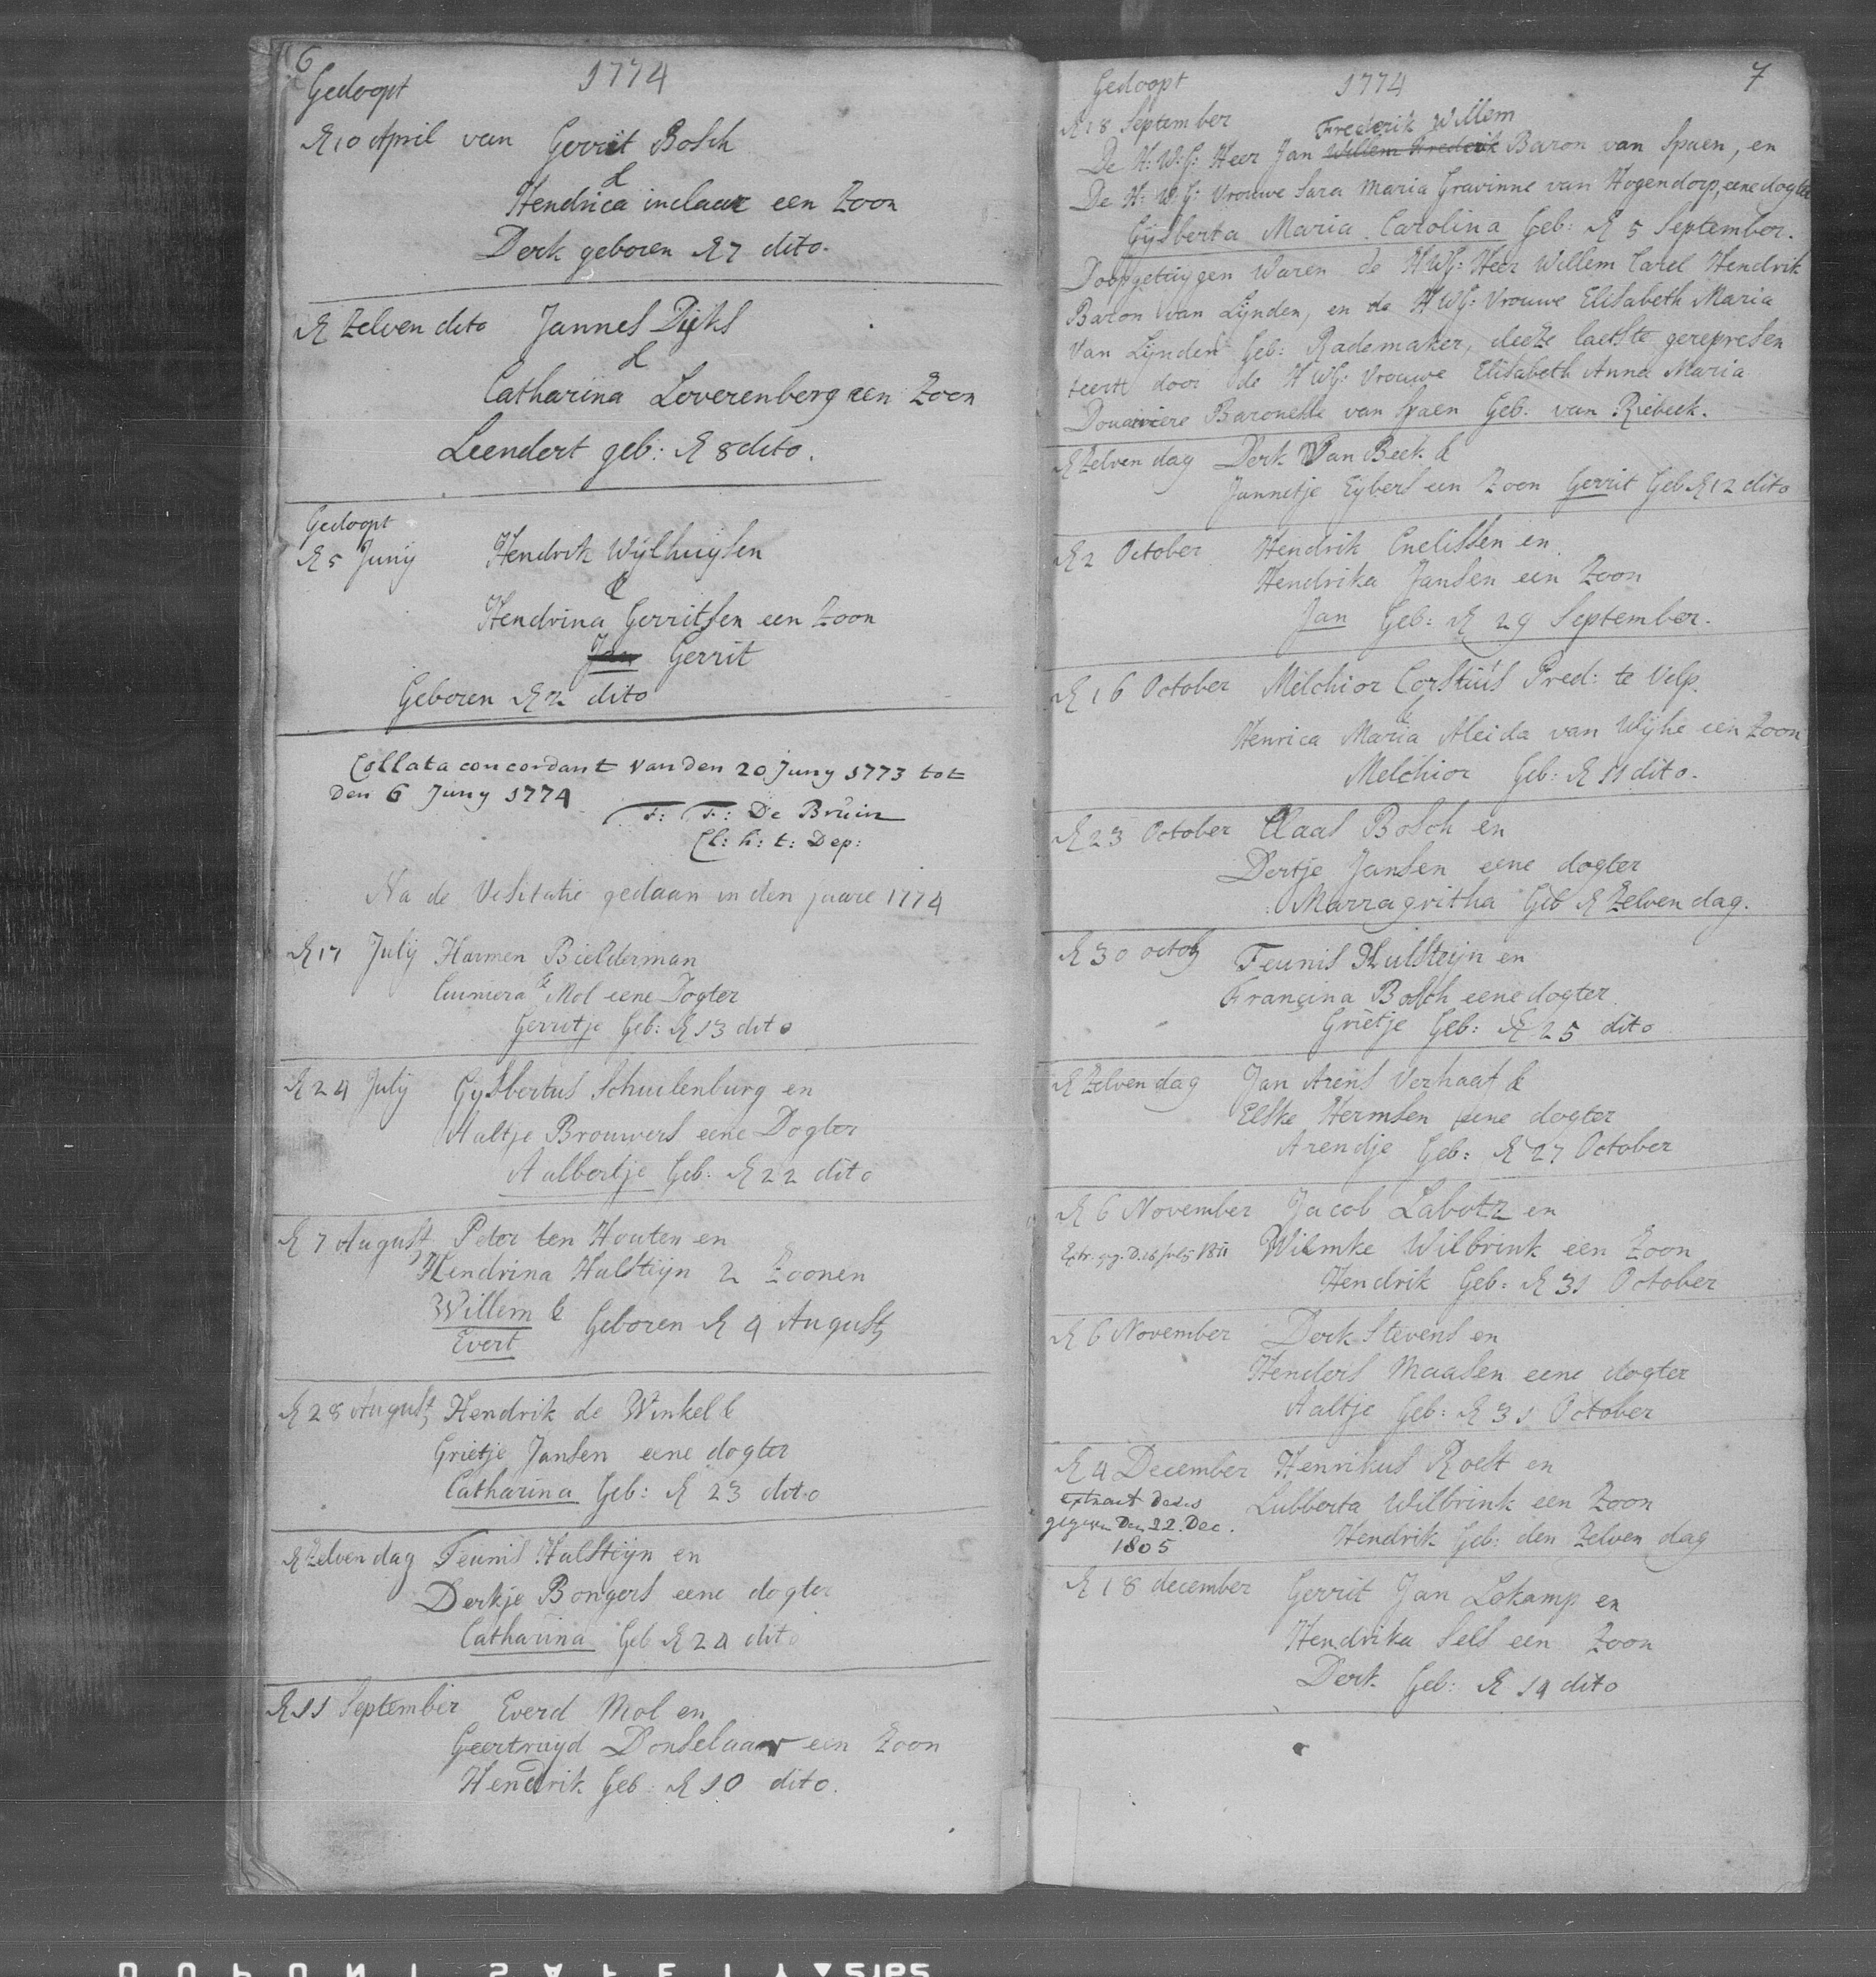 6
Gedoopt 1774
den 10 April van Gerrit Bosch
&
Hendrica inclaar een Zoon
Derk geboren den 7 dito.
den Zelven dito Jannes Dijks
&
Catharina Loverenberg een Zoon
Leendert geb: den 8 dito.
Gedoopt
den 5 Junij Hendrik Wijlhuijsen
&
Hendrina Gerritsen een Zoon
Jan Gerrit
Geboren den 2 dito
Collata concordant van den 20 Juny 1773 tot
den 6 Juny 1774
F: F: De Bruin
Cl: h: t: Dep:
Na de Visitatie gedaan in den jaare 1774
den 17 July Harmen Bielderman
&
Cunnera Mol eene Dogter
Gerritje Geb: den 13 dito
den 24 July Gysbertus Schuilenburg en
Aaltje Brouwers eene Dogter
Aalbertje Geb: den 22 dito
den 7 August Peter ten Houten en
Hendrina Hulsteijn 2 Zoonen
Willem &
Evert Geboren den 4 August
den 28 August Hendrik de Winkel &
Grietje Jansen eene dogter
Catharina Geb: den 23 dito
den Zelven dag Teunis Hulsteijn en
Derkje Bongers eene dogter
Catharina Geb den 24 dito
den 11 September Everd Mol en
Geertruyd Donselaar een Zoon
Hendrik Geb: den 10 dito.
7
Gedoopt 1774
den 18 September
Frederik Willem
De H: W: G: Heer Jan Willem Frederik Baron van Spaen, en
De H: W: G: Vrouwe Sara Maria Gravinne van Hogendorp, eene dogter
Gijsberta Maria Carolina Geb: den 5 September.
Doopgetuygen Waren de H WG: Heer Willem Carel Hendrik
Baron van Lijnden, en de H WG: Vrouwe Elisabeth Maria
Van Lijnden Geb: Rademaker, deeze laetste gerepresen
teert door de H WG: Vrouwe Elisabeth Anna Maria
Douariere Baronesse van Spaen Geb: van Riebeek.
den Zelven dag Derk Van Beek &
Jannetje Eybers een Zoon Gerrit Geb den 12 dito
den 2 October Hendrik Cnelissen en
Hendrika Jansen een Zoon
Jan Geb: den 29 September.
den 16 October Melchior Corstius Pred: te Velp.
&
Henrica Maria Aleida van Wijhe een Zoon
Melchior Geb: den 11 dito.
den 23 October Claas Bosch en
Dertje Jansen eene dogter
Marragritha Geb den Zelven dag.
den 30 octob Teunis Hulsteijn en
Francina Bosch eene dogter
Grietje Geb: den 25 dito
den Zelven dag Jan Arens Verhaaf &
Elske Hermsen eene dogter
Arendje Geb: den 27 October
den 6 November Jacob Labotz en
Extr. geg. D. 18 July 1811 Wilmke Wilbrink een Zoon
Hendrik Geb: den 31 October
den 6 November Derk Stevens en
Henders Maasen eene dogter
Aaltje Geb: den 31 October
den 4 December Henrikus Roest en
extract deses Lubberta Wilbrink een Zoon
gegeven Den 22 Dec.
1805 Hendrik Geb: den Zelven dag
den 18 december Gerrit Jan Lokamp en
Hendrika Sels een Zoon
Derk Geb: den 14 dito